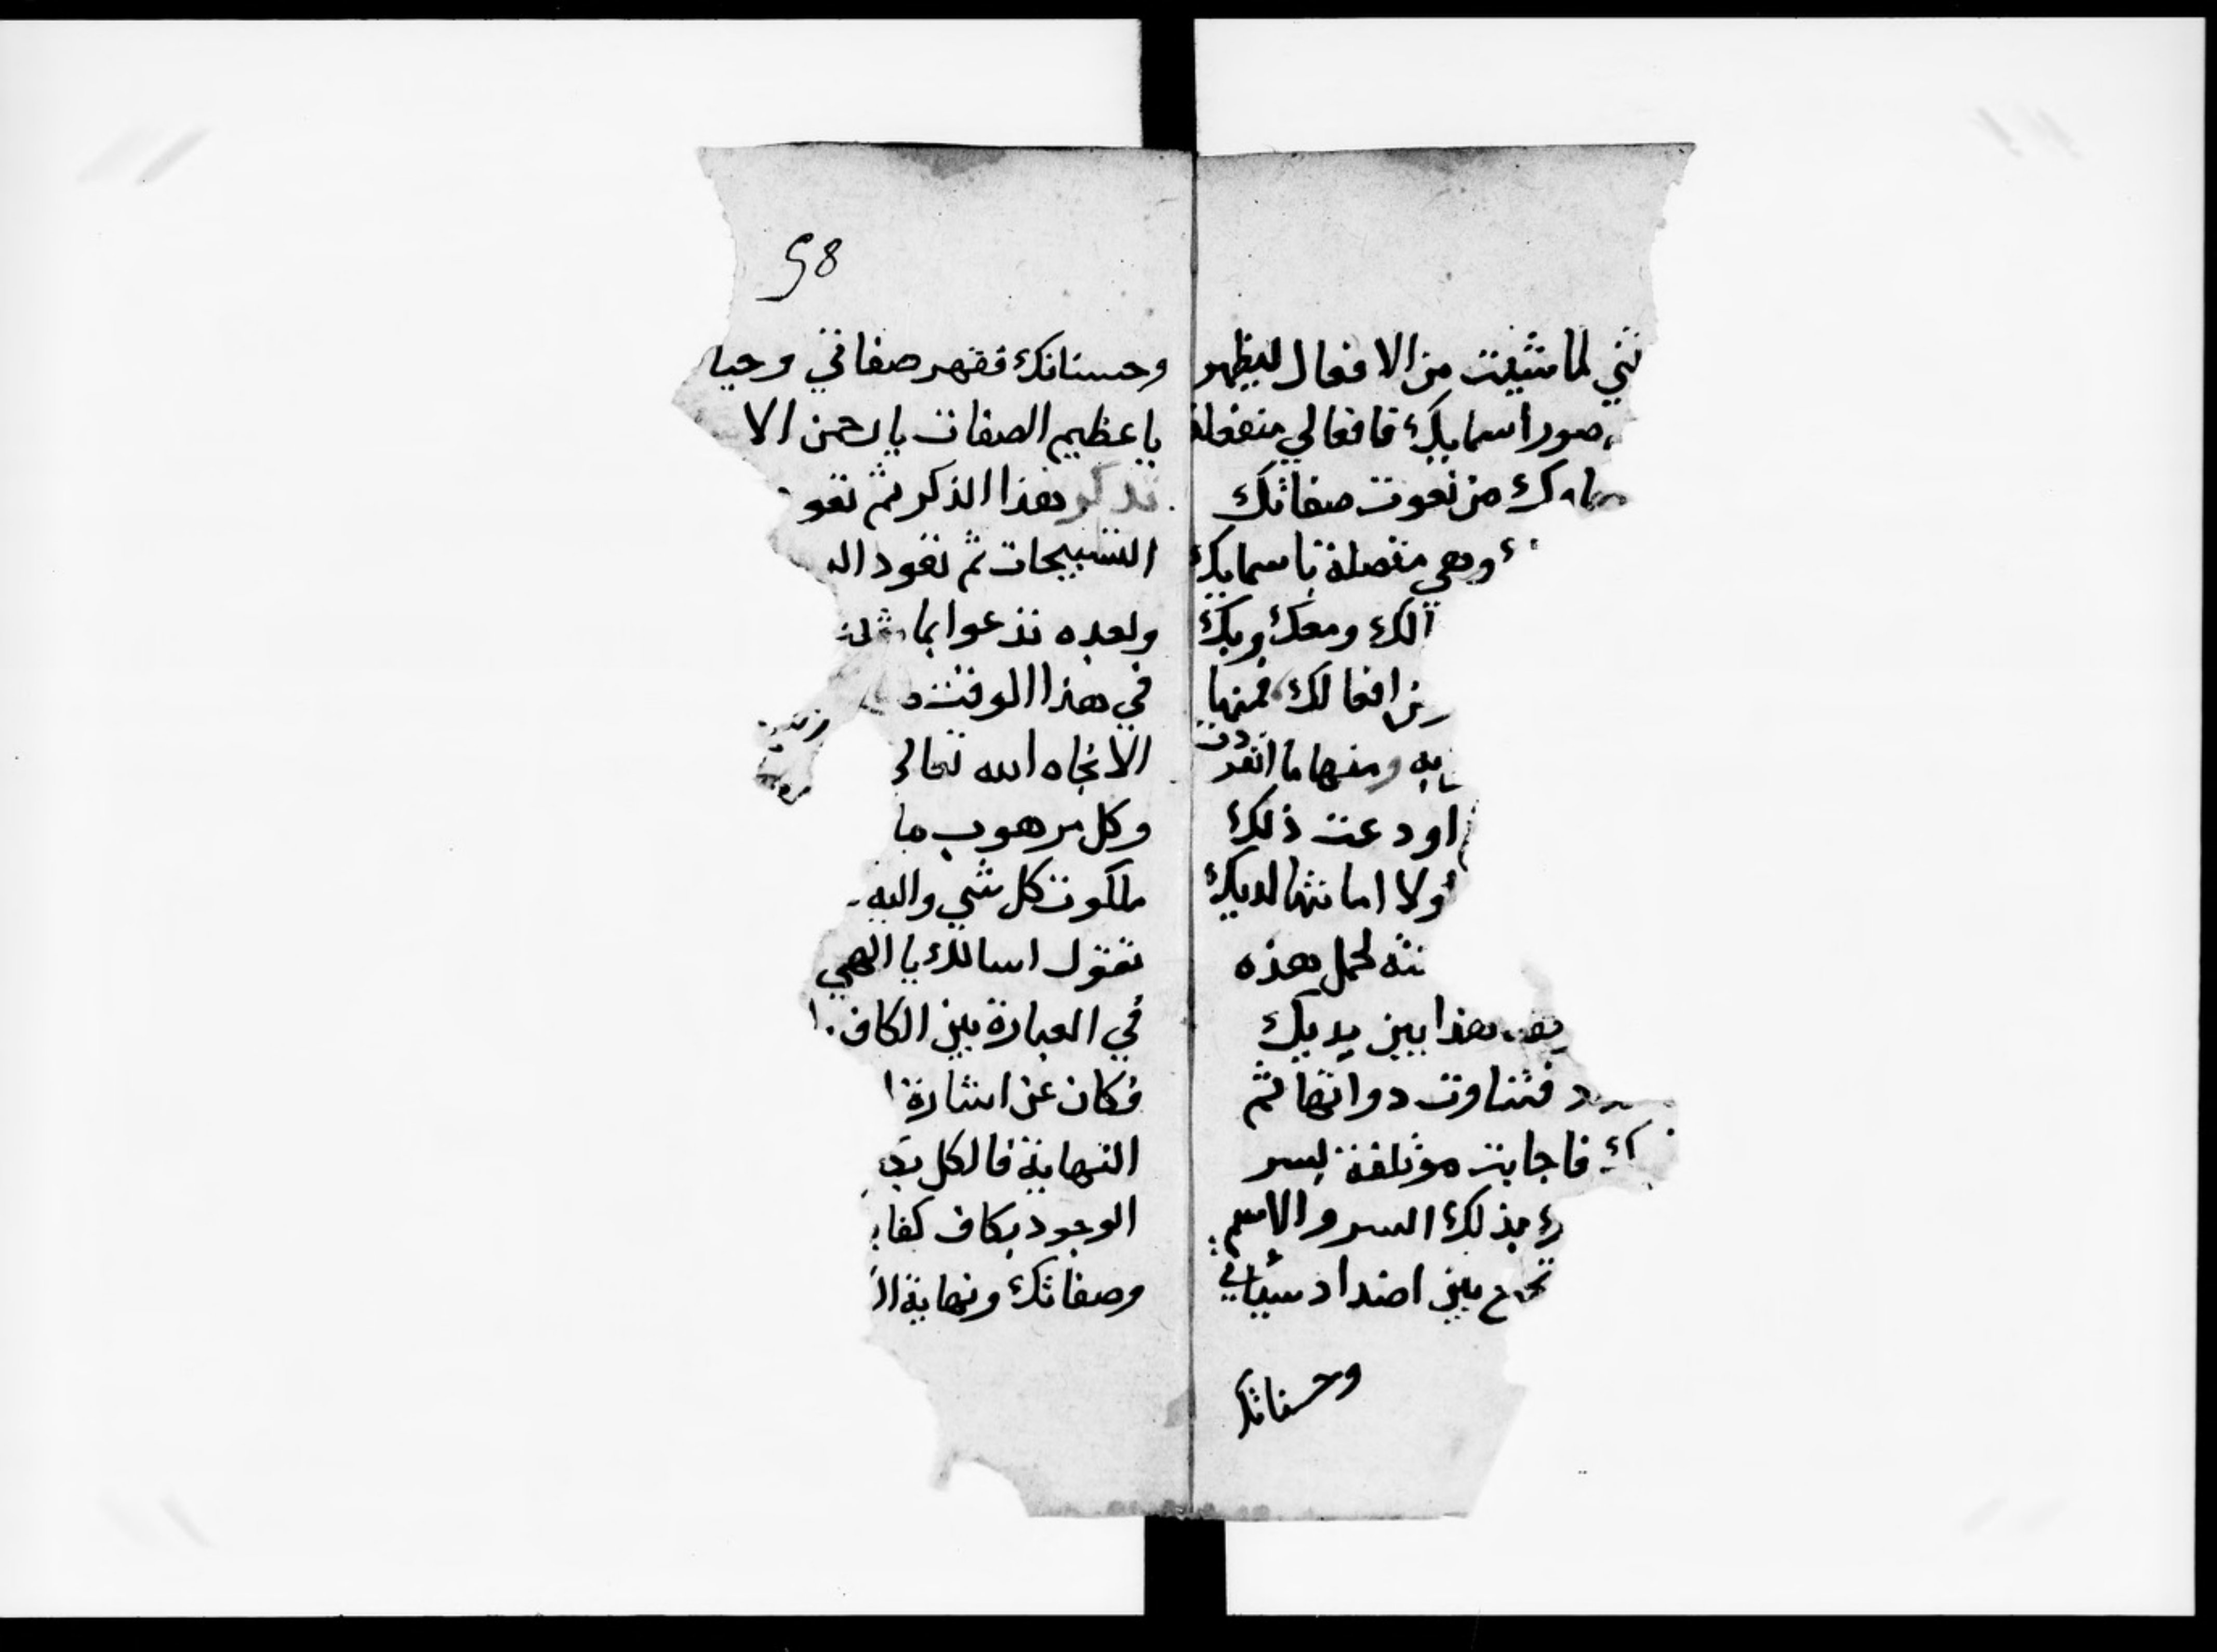 ني لما شيت من الافعال ليظهر
صور اسمايك فافعالي منفعلة
من نعوت صفاتك
وهي متصلة باسمايك
لك ومعك وبك
من افعالك فمنها
به ومنها ما انفردت
اودعت ذلك
ولا امانتها لديك
لحمل هذه
هذا بين يديك
فتناوت دواتها ثم
فاجابت موتلفة بسر
بذلك السر والاسم
بين اضداد سيأتي
وحسناتك
98
وحسناتك فقهر صفاتي وحيا
يا عظيم الصفات يا رحمن الا
تذكر هذا الذكر ثم تقو
التسبيحات ثم تعود الـ
وبعده تدعوا بما
في هذا الوقت
الا نجاه الله تعالى
وكل مرهوب
ملكوت كل شي واليه
تقول اسالك يا الهي
في العبارة بين الكاف
فكان عن اشارة
النهاية فالكل
الوجود بكاف
وصفاتك ونهاية الـ